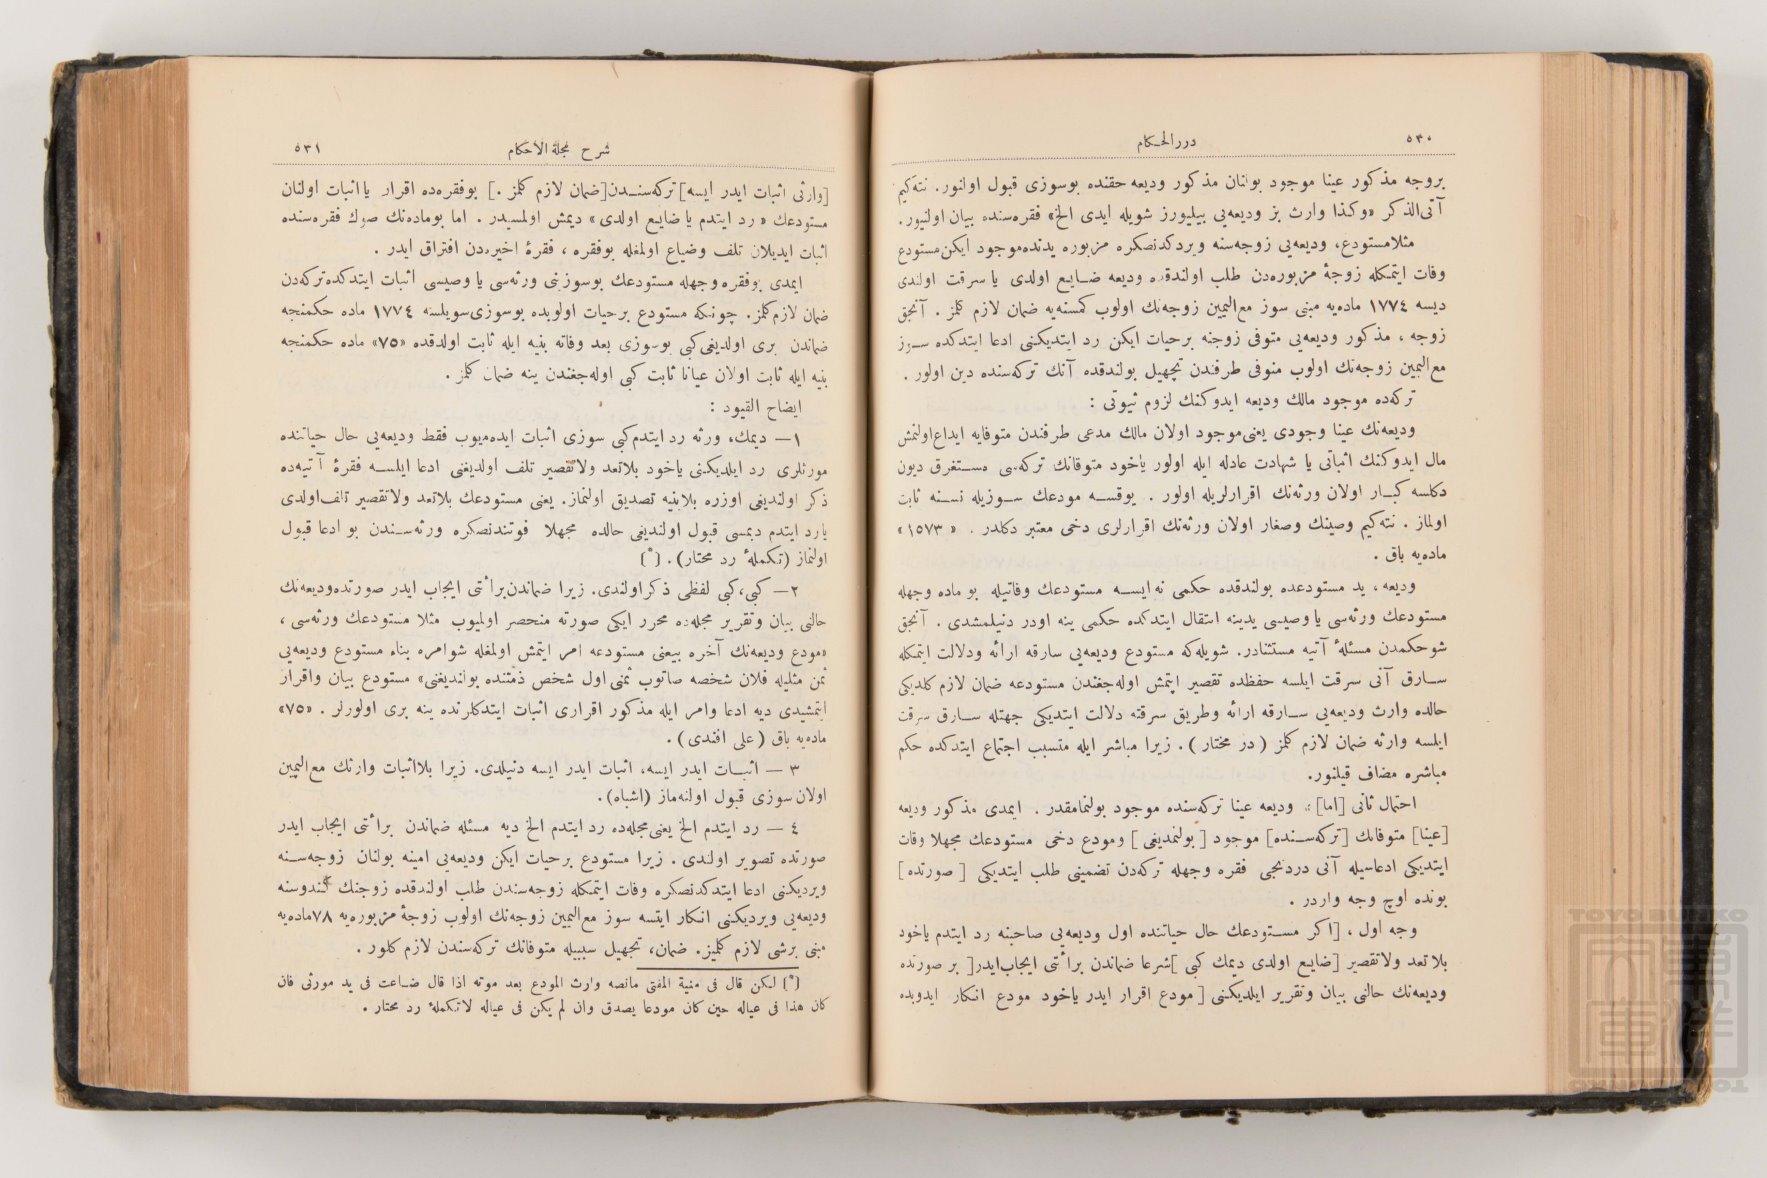 ٥٣٠
دررالحكام
بروجه مذكور عينا موجود بولنان مذكور وديعه حقنده بوسوزى قبول اولنور. نته‌كيم
آتى‌الذكر «وكذا وارث بز وديعه‌يى بيليورز شويله ايدى الخ» فقره‌سنده بيان اولنيور.
مثلا مستودع، وديعه‌يى زوجه‌سنه ويردكدنصكره مزبوره يدنده موجود ايكن مستودع
وفات ايتمكله زوجهٔ مزبوره‌دن طلب اولندقده وديعه ضايع اولدى يا سرقت اولندى
ديسه ١٧٧٤ ماده‌يه مبنى سوز مع‌اليمين زوجه‌نك اولوب كمسنه‌يه ضمان لازم كلمز . آنجق
زوجه ، مذكور وديعه‌يى متوفى زوجنه برحيات ايكن رد ايتديكنى ادعا ايتدكده سوز
مع‌اليمين زوجه‌نك اولوب متوفى طرفندن تجهيل بولندقده آنك تركه‌سنده دين اولور .
تركه‌ده موجود مالك وديعه ايدوكنك لزوم ثبوتى :
وديعه‌نك عينا وجودى يعنى موجود اولان مالك مدعى طرفندن متوفايه ايداع اولنمش
مال ايدوكنك اثباتى يا شهادت عادله ايله اولور ياخود متوفانك تركه‌سى مستغرق ديون
دكلسه كبار اولان ورثه‌نك اقرارلريله اولور . يوقسه مودعك سوزيله نسنه ثابت
اولماز . نته‌كيم وصينك وصغار اولان ورثه‌نك اقرارلرى دخى معتبر دكلدر . « ١٥٧٣ »
ماده‌يه باق .
وديعه ، يد مستودعده بولندقده حكمى نه ايسه مستودعك وفاتيله بو ماده وجهله
مستودعك ورثه‌سى يا وصيسى يدينه انتقال ايتدكده حكمى ينه اودر دنيلمشدى . آنجق
شو حكمدن مسئلهٔ آتيه مستثنادر. شويله‌كه مستودع وديعه‌يى سارقه ارائه ودلالت ايتمكله
سارق آنى سرقت ايلسه حفظده تقصير ايتمش اوله‌جغندن مستودعه ضمان لازم كلديكى
حالده وارث وديعه‌يى سارقه ارائه وطريق سرقته دلالت ايتديكى جهتله سارق سرقت
ايلسه وارثه ضمان لازم كلمز ( در مختار ) . زيرا مباشر ايله متسبب اجتماع ايتدكده حكم
مباشره مضاف قيلنور.
احتمال ثانى [اما]: وديعه عينا تركه‌سنده موجود بولنمامقدر . ايمدى مذكور وديعه
[عينا] متوفانك [تركه‌سنده] موجود [ بولنمديغى ] ومودع دخى مستودعك مجهلا وفات
ايتديكى ادعاسيله آنى دردنجى فقره وجهله تركه‌دن تضمينى طلب ايتديكى [ صورتده ]
بونده اوچ وجه واردر .
وجه اول ، [اكر مستودعك حال حياتنده اول وديعه‌يى صاحبنه رد ايتدم ياخود
بلا تعد ولاتقصير [ضايع اولدى ديمك كبى ]شرعا ضماندن برائتى ايجاب‌ايدر[ بر صورتده
وديعه‌نك حالنى بيان وتقرير ايلديكنى [ مودع اقرار ايدر ياخود مودع انكار ايدوبده
شرح مجلة الاحكام
٥٣١
[وارثى اثبات ايدر ايسه] تركه‌سندن[ضمان لازم كلمز .] بوفقره‌ده اقرار يا اثبات اولنان
مستودعك « رد ايتدم يا ضايع اولدى» ديمش اولمسيدر . اما بوماده‌نك صوك فقره‌سنده
اثبات ايديلان تلف وضياع اولمغله بوفقره ، فقرهٔ اخيره‌دن افتراق ايدر .
ايمدى بوفقره وجهله مستودعك بوسوزينى ورثه‌سى يا وصيسى اثبات ايتدكده تركه‌دن
ضمان لازم كلمز. چونكه مستودع برحيات اولوبده بوسوزى سويلسه ١٧٧٤ ماده حكمنجه
ضماندن برى اولديغى كبى بوسوزى بعد وفاته بنيه ايله ثابت اولدقده «٧٥» ماده حكمنجه
بنيه ايله ثابت اولان عيانا ثابت كبى اوله‌جغندن ينه ضمان كلمز .
ايضاح القيود :
١— ديمك، ورثه رد ايتدم كبى سوزى اثبات ايده‌ميوب فقط وديعه‌يى حال حياتنده
مورثلرى رد ايلديكنى ياخود بلاتعد ولاتقصير تلف اولديغنى ادعا ايلسه فقرهٔ آتيه‌ده
ذكر اولنديغى اوزره بلابنيه تصديق اولنماز. يعنى مستودعك بلاتعد ولاتقصير تلف اولدى
يا رد ايتدم ديمسى قبول اولنديغى حالده مجهلا فوتندنصكره ورثه‌سندن بو ادعا قبول
اولنماز (تكملهٔ رد محتار) . [*]
٢— كبى، كبى لفظى ذكر اولندى. زيرا ضماندن برائتى ايجاب ايدر صورتده وديعه‌نك
حالنى بيان وتقرير مجله‌ده محرر ايكى صورته منحصر اولميوب مثلا مستودعك ورثه‌سى ،
«مودع وديعه‌نك آخره بيعنى مستودعه امر ايتمش اولمغله شو امره بناء مستودع وديعه‌يى
ثمن مثليله فلان شخصه صاتوب ثمنى اول شخص ذمتنده بولنديغنى» مستودع بيان واقرار
ايتمشيدى ديه ادعا وامر ايله مذكور اقرارى اثبات ايتدكلرنده ينه برى اولورلر . «٧٥»
ماده‌يه باق ( على افندى ) .
٣ — اثبات ايدر ايسه، اثبات ايدر ايسه دنيلدى. زيرا بلااثبات وارثك مع‌اليمين
اولان سوزى قبول اولنه‌ماز (اشباه).
٤ — رد ايتدم الخ يعنى مجله‌ده رد ايتدم الخ ديه مسئله ضماندن برائتى ايجاب ايدر
صورتده تصوير اولندى . زيرا مستودع برحيات ايكن وديعه‌يى امينه بولنان زوجه‌سنه
ويرديكنى ادعا ايتدكدنصكره وفات ايتمكله زوجه‌سندن طلب اولندقده زوجنك كندوسنه
وديعه‌يى ويرديكنى انكار ايتسه سوز مع‌اليمين زوجه‌نك اولوب زوجهٔ مزبوره‌يه ٧٨ماده‌يه
مبنى برشى لازم كلميز. ضمان، تجهيل سببيله متوفانك تركه‌سندن لازم كلور .
[*] لكن قال فى منية المفتى مانصه وارث المودع بعد موته اذا قال ضاعت فى يد مورثى فان
كان هذا فى عياله حين كان مودعا يصدق وان لم يكن فى عياله لا تكملهٔ رد محتار .
TOYO BUNKO